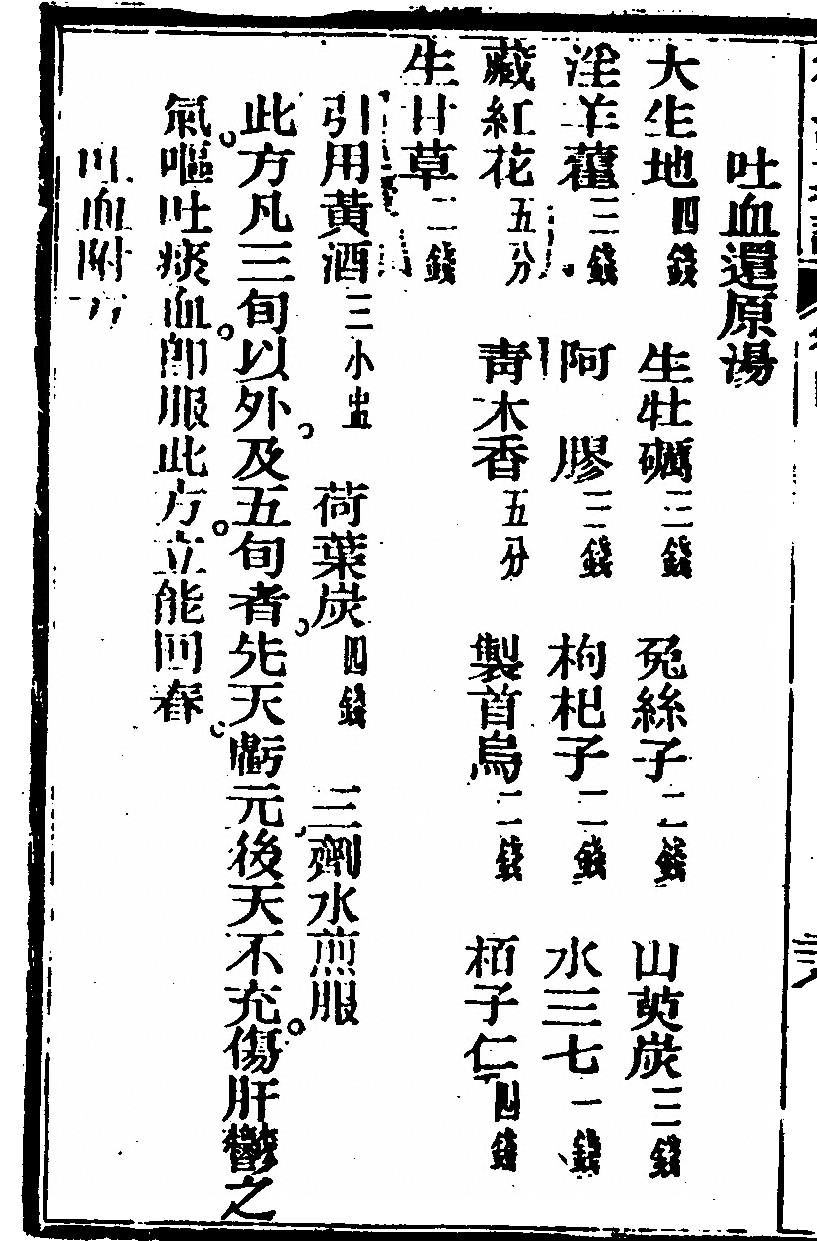 吐血還原湯
大生地四錢 生牡礪三錢 兔絲子二錢 山萸炭三錢
淫羊藿三錢 阿膠三錢 枸杞子二錢 水三七一錢
藏紅花五分 青木香五分 製首烏二錢 栢子仁四錢
生甘草二錢
引用黃酒三小盅 荷葉炭四錢 三劑水煎服
此方凡三旬以外及五旬者先天虧元後天不充傷肝鬱之
氣嘔吐痰血卽服此方立能回春
吐血附方